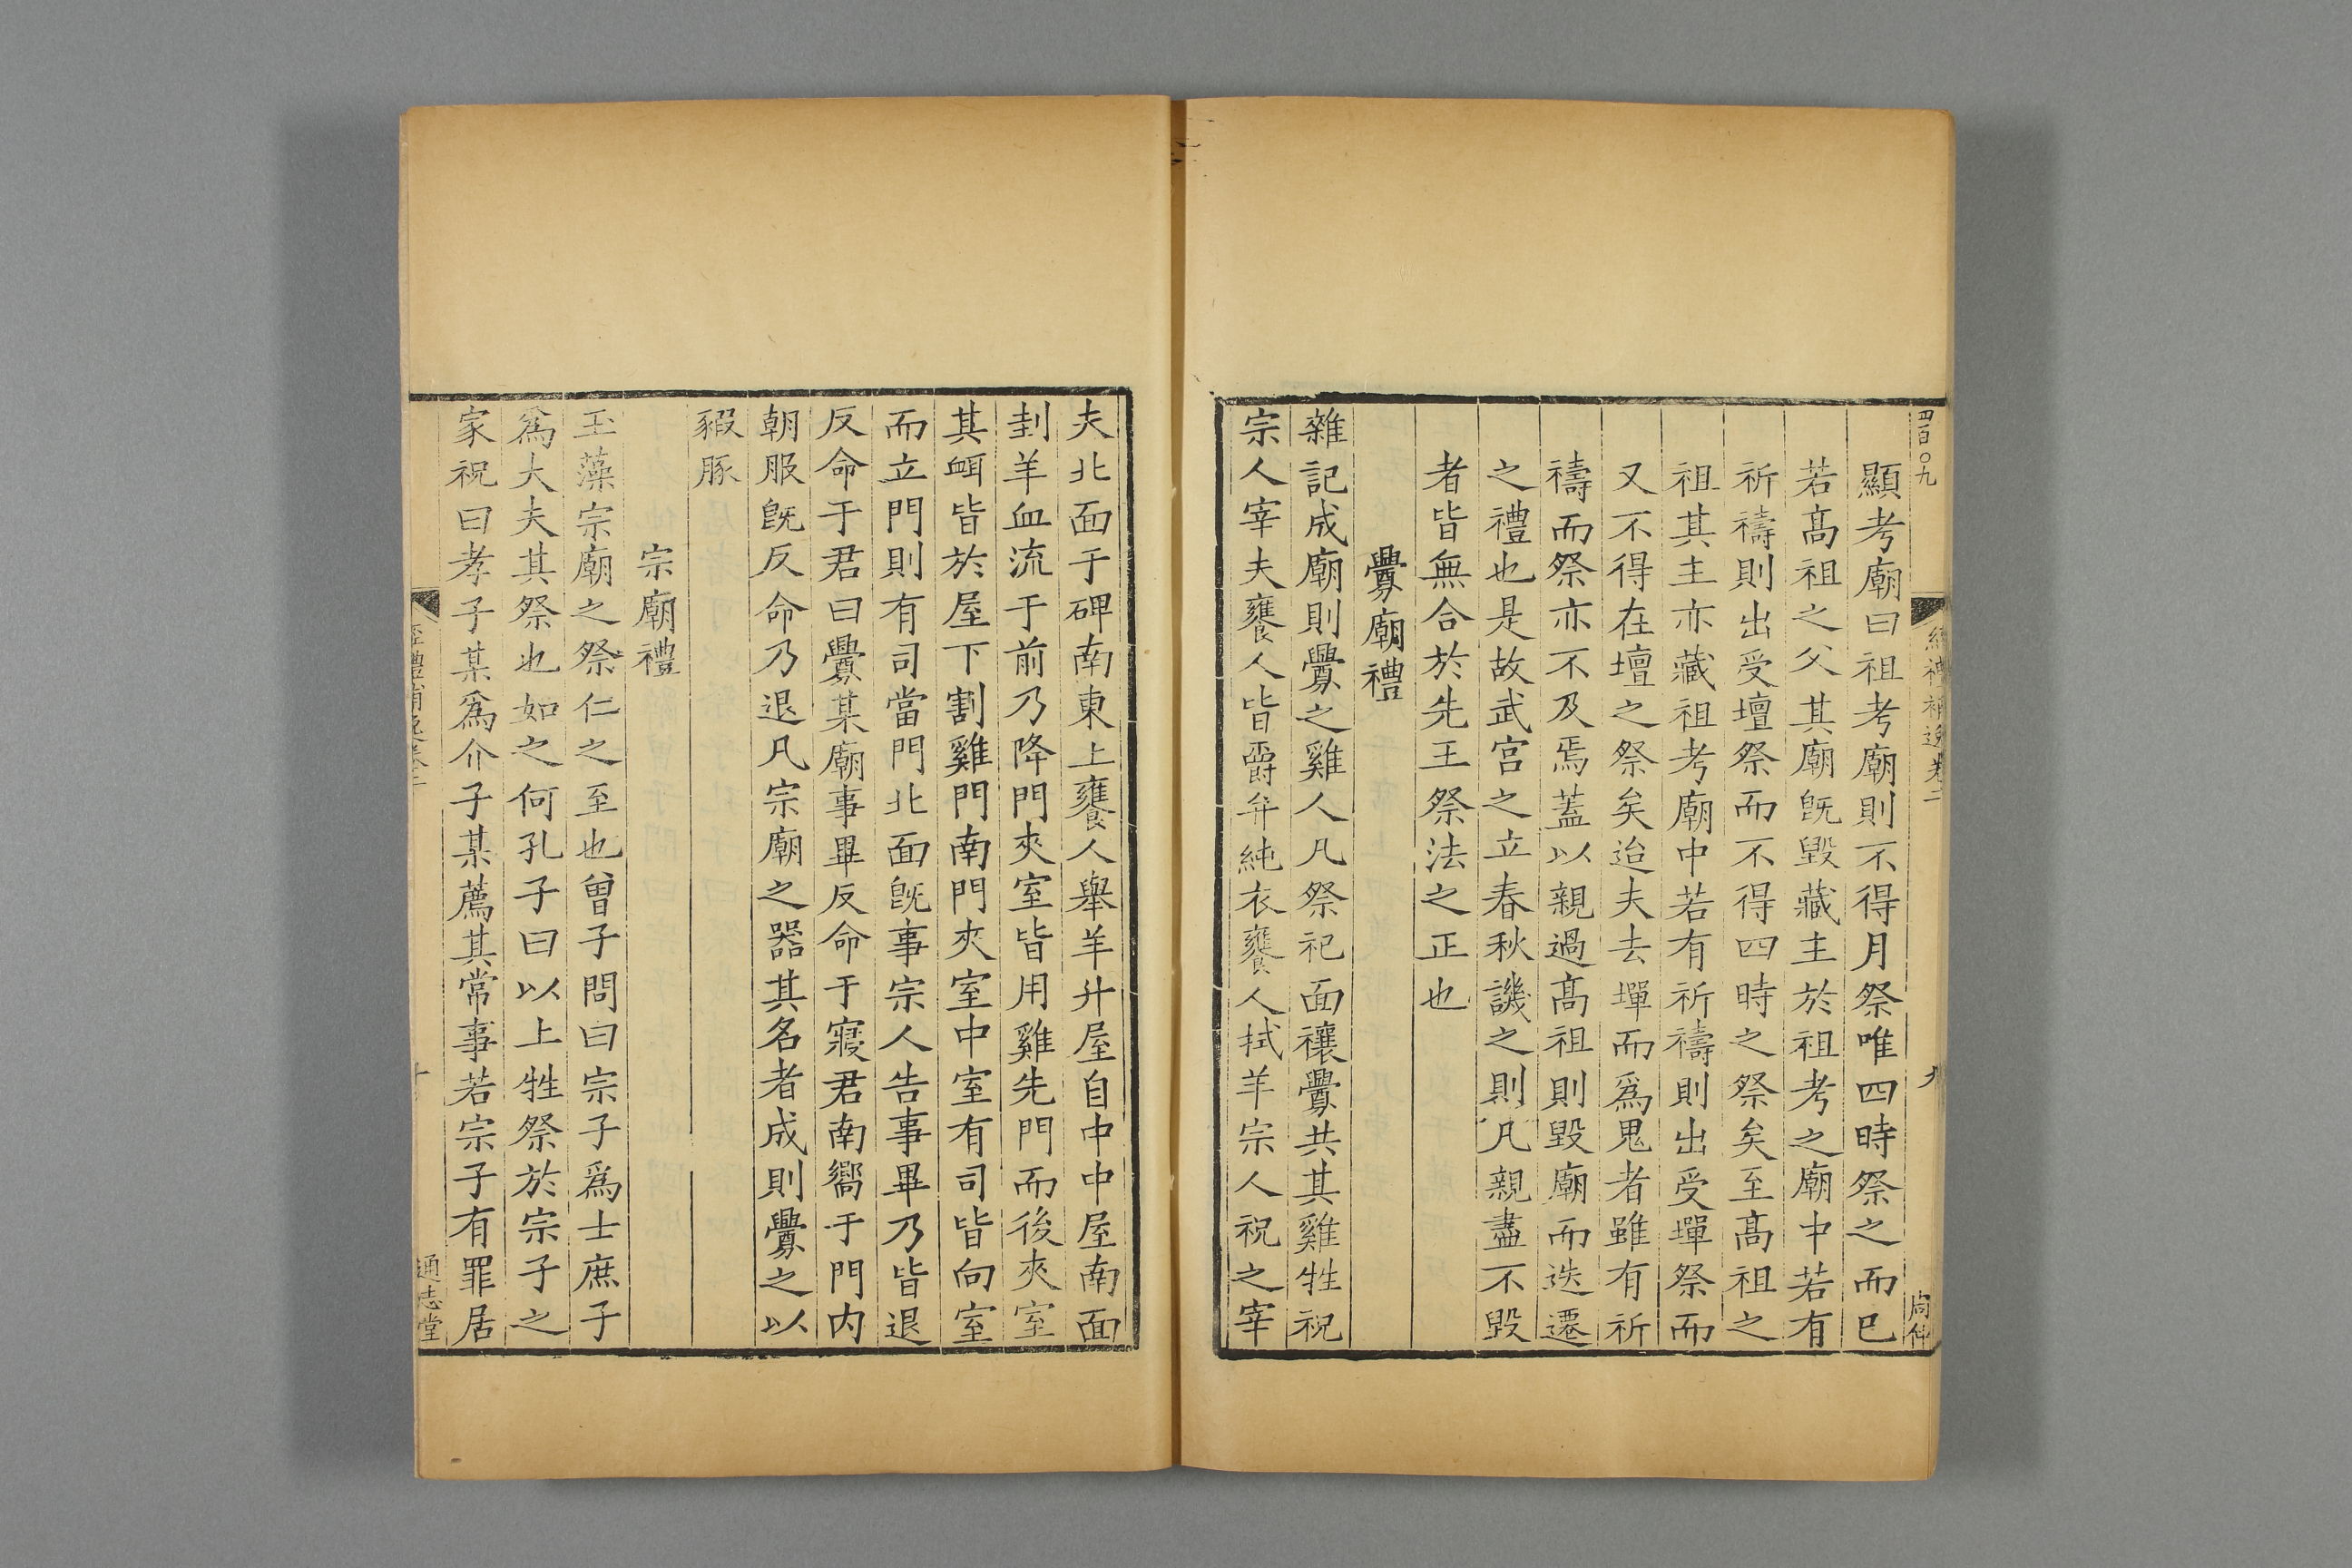 四百〇九
經禮補逸卷二
九
顯考廟曰祖考廟則不得月祭唯四時祭之而已
若高祖之父其廟旣毀藏主於祖考之廟中若有
祈禱則出受壇祭而不得四時之祭矣至高祖之
祖其主亦藏祖考廟中若有祈禱則出受墠祭而
又不得在壇之祭矣迨夫去墠而爲鬼者雖有祈
禱而祭亦不及焉蓋以親過高祖則毀廟而迭遷
之禮也是故武宮之立春秋譏之則凡親盡不毀
者皆無合於先王祭法之正也
釁廟禮
雜記成廟則釁之雞人凡祭祀面禳釁共其雞牲祝
宗人宰夫饔人皆爵弁純衣饔人拭羊宗人祝之宰
夫北面于碑南東上饔人舉羊升屋自中中屋南面
刲羊血流于前乃降門夾室皆用雞先門而後夾室
其衈皆於屋下割雞門南門夾室中室有司皆向室
而立門則有司當門北面旣事宗人告事畢乃皆退
反命于君曰釁某廟事畢反命于寢君南嚮于門内
朝服旣反命乃退凡宗廟之器其名者成則釁之以
豭豚
宗廟禮
玉藻宗廟之祭仁之至也曾子問曰宗子爲士庶子
爲大夫其祭也如之何孔子曰以上牲祭於宗子之
家祝曰孝子某爲介子某薦其常事若宗子有罪居
經禮補逸卷二
十
通志堂